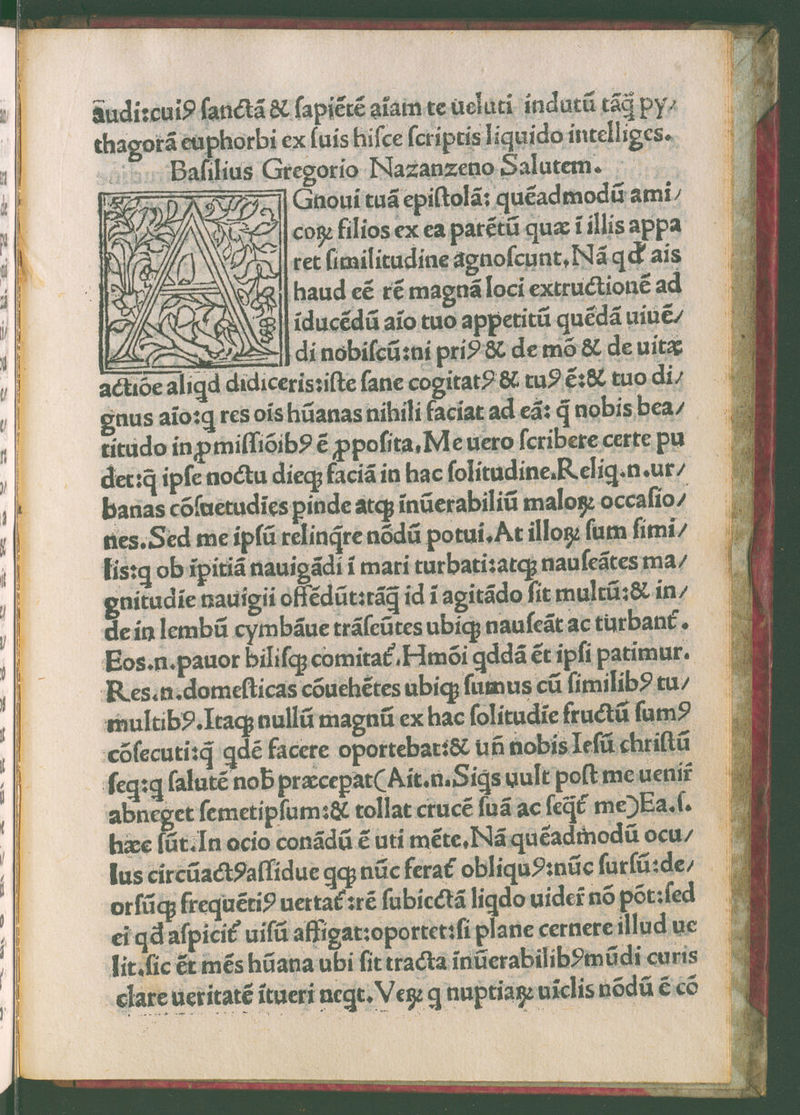 audi:cui⁹ ſanctā & ſapiētē aīam te ueluti indutū tāq̄ py⸗
thagorā euphorbi ex ſuis hiſce ſcriptis liquido intelliges.
Baſilius Gregorio Nazanzeno Salutem.
AGnoui tuā epiſtolā: quēadmodū ami⸗
coꝝ filios ex ea parētū quæ ī illis appa
ret ſimilitudine agnoſcunt, Nā qđ ais
haud eē rē magnā loci extructionē ad
īducēdū aīo tuo appetitū quēdā uiuē⸗
di nobiſcū:ni pri⁹ & de mō & de uitæ
actiōe aliqd didiceris:iſte ſane cogitat⁹ & tu⁹ ē:& tuo di⸗
gnus aīo:q res oīs hūanas nihili faciat ad eā: q̄ nobis bea⸗
titudo in ꝓmiſſiōib⁹ ē ꝓpoſita, Me uero ſcribere certe pu
det:q̄ ipſe noctu dieqꝫ faciā in hac ſolitudine. Reliq.n.ur⸗
banas cōſuetudies pinde atqꝫ inūerabiliū maloꝝ occaſio⸗
nes. Sed me ipſū relinq̄re nōdū potui. At illoꝝ ſum ſimi⸗
lis:q ob īpitiā nauigādi ī mari turbati:atqꝫ nauſeātes ma⸗
gnitudīe nauigii offēdūt:tāq̄ id ī agitādo ſit multū:& in⸗
de in lembū cymbāue trāſeūtes ubiqꝫ nauſeāt ac turbant̄.
Eos.n.pauor biliſqꝫ comitat̄. Hmōi qddā ēt ipſi patimur.
Res.n.domeſticas cōuehētes ubiqꝫ ſumus cū ſimilib⁹ tu⸗
multib⁹. Itaqꝫ nullū magnū ex hac ſolitudīe fructū ſum⁹
cōſecuti:q̄ qdē facere oportebat:& uñ nobis Ieſū chriſtū
ſeq:q ſalutē nob præcepat(Ait.n.Siqs uult poſt me uenir̄
abneget ſemetipſum:& tollat crucē ſuā ac ſeqt̄ me)Ea.ſ.
hæc ſūt. In ocio conādū ē uti mēte, Nā quēadmodū ocu⸗
lus circūact⁹ aſſidue qqꝫ nūc ferat̄ obliqu⁹:nūc ſurſū:de⸗
orſūqꝫ frequēti⁹ uertat̄:rē ſubiectā liqdo uider̄ nō pōt:ſed
ei qd aſpicit̄ uiſū affigat:oportet:ſi plane cernere illud ue
lit.ſic ēt mēs hūana ubi ſit tracta inūerabilib⁹ mūdi curis
clare ueritatē ītueri neqt. Veꝝ q nuptiaꝝ uīclis nōdū ē cō